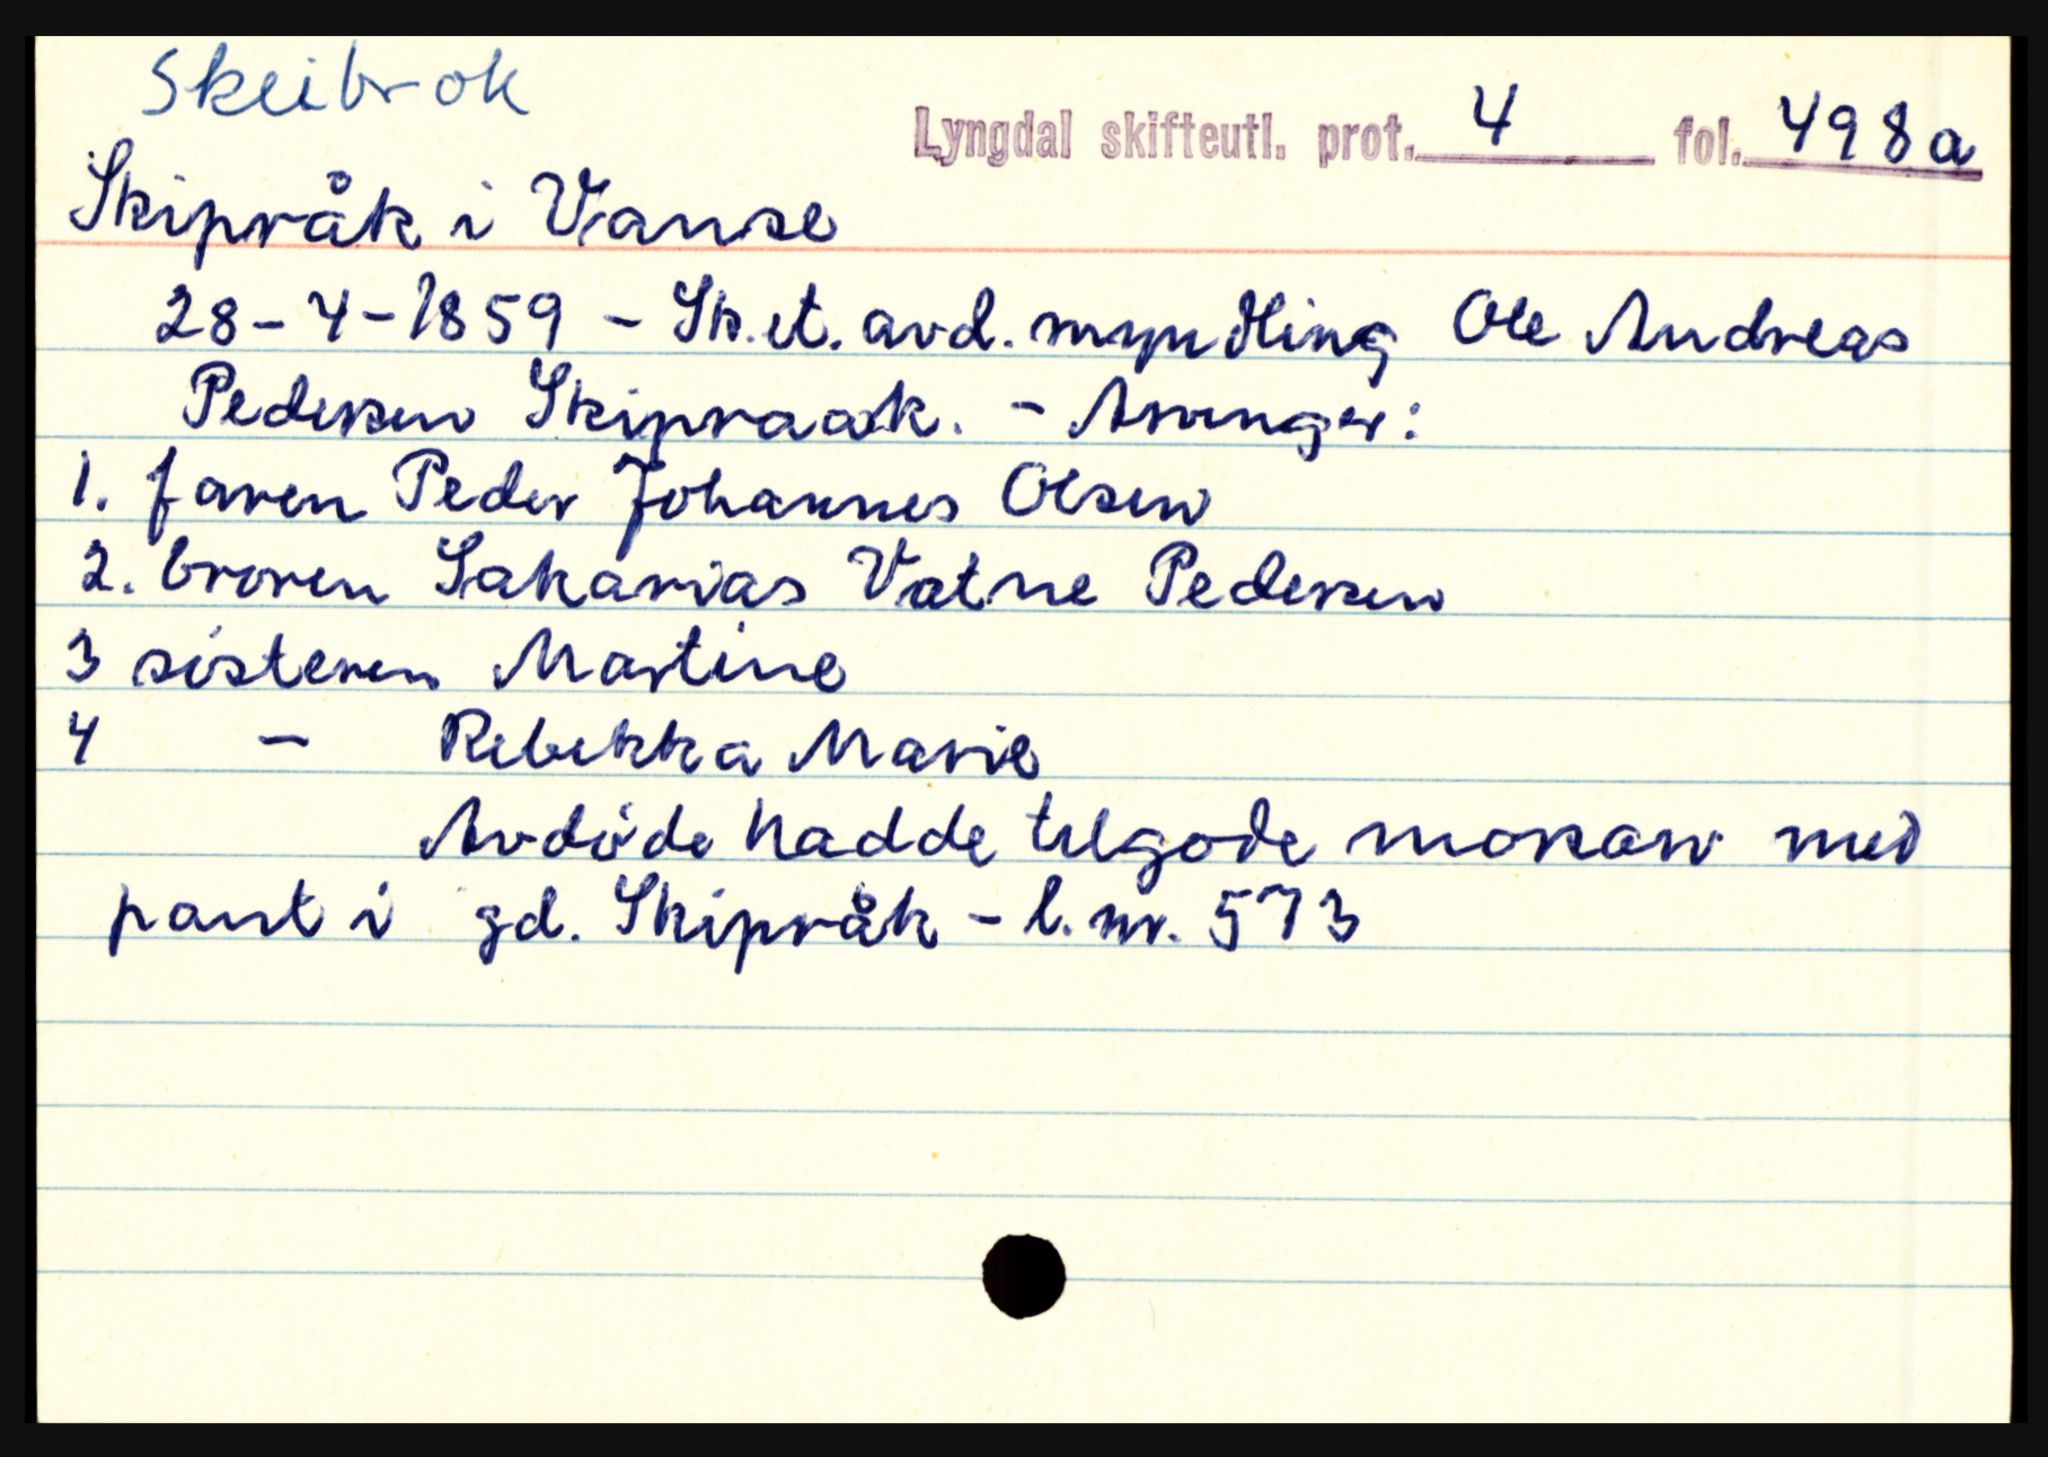 Skeibrok
Lyngdal skifteutl. prot. 4 fol. 498a
Skipråk i Vanse
28-4-1859 - Sk.et. avd. myndling Ole Andreas
Pedersen Skipraak. - Arvinger:
1. faren Peder Johannes Olsen
2. broren Sakarias Vatne Pedersen
3 søsteren Martine
4 - Rebekka Marie
Avdøde hadde tilgode morsarv med
pant i gd. Skipråk - l. nr. 573